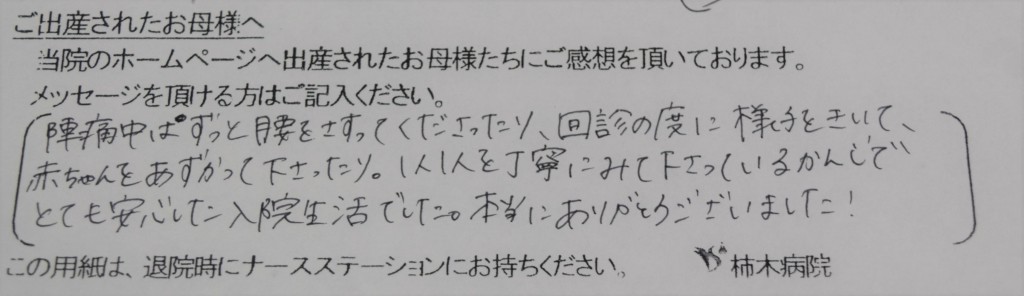 ご出産されたお母様へ
当院のホームページへ出産されたお母様たちにご感想を頂いております。
メッセージを頂ける方はご記入ください。
陣痛中はずっと腰をさすってくださったり、回診の度に様子をきいて、
赤ちゃんをあずかって下さったり。1人1人を丁寧にみて下さっているかんじで
とても安心した入院生活でした。本当にありがとうございました!
この用紙は、退院時にナースステーションにお持ちください。 柿木病院